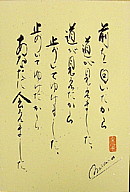 前を向いたから
道が見えました。
道が見えたから
歩いてゆけました。
歩いてゆけたから
あなたに会えました。